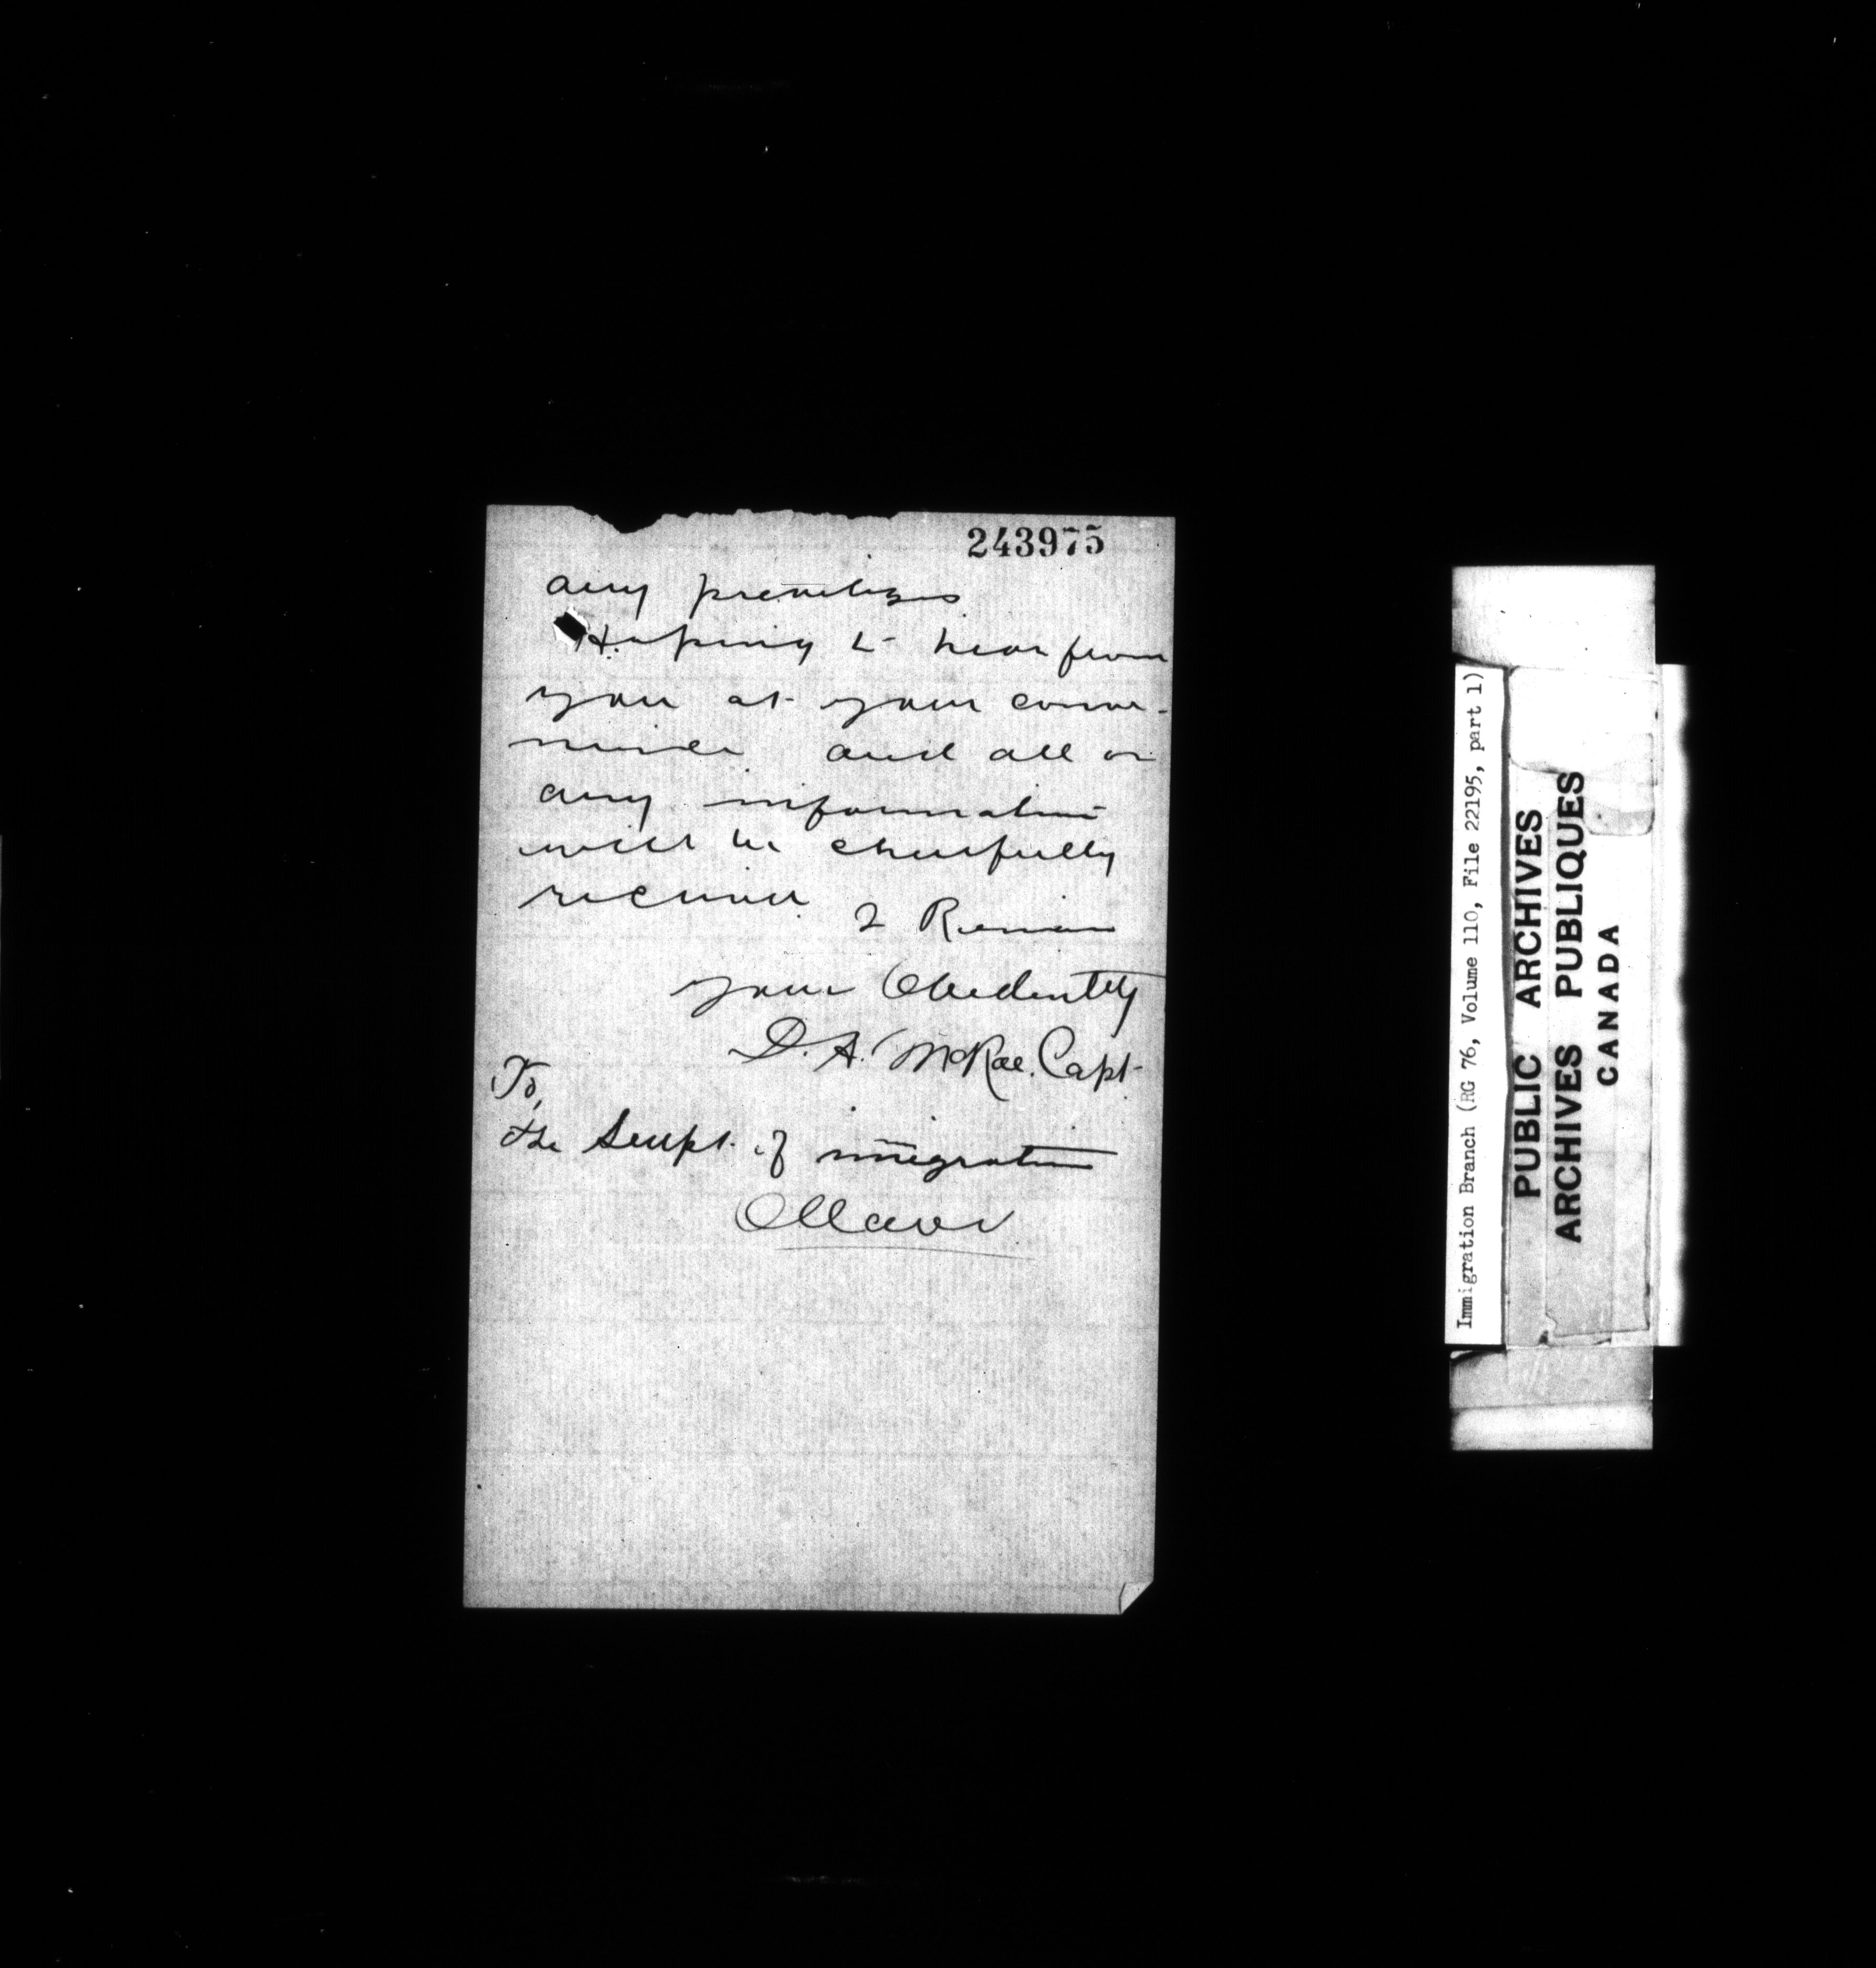 243975
any priveleges
Hoping to hear from
you at your conve-
nience and all or
any information
will be cheerfully
received
I Remain
your Obedently
D. A. McRae. Capt.
To,
the Supt. of imigration
Ottawa
Immigration Branch (RG 76, Volume 110, File 22195, part 1)
PUBLIC ARCHIVES
ARCHIVES PUBLIQUES
CANADA